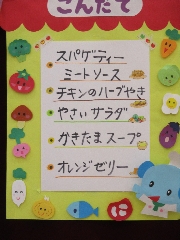 こんだて
スパゲティー
ミートソース
チキンのハーブやき
やさいサラダ
かきたまスープ
オレンジゼリー